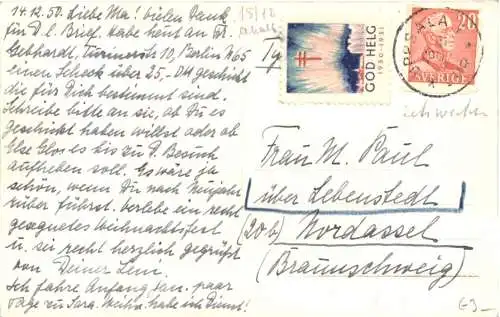 14.12.50. Liebe Ma! vielen Dank
für D. l. Brief. Habe heut an Fr.
Gebhardt, Türmerstr 10, Berlin N. 65
einen Scheck über 25.- DM geschickt
die für Dich bestimmt sind.
Schreibe bitte an sie, ob Du es
geschickt haben willst oder ob
Else es bis zu D. Besuch
aufheben soll. Es wäre ja
schön, wenn Du nach Neujahr
rüber führst. Verlebe ein recht
gesegnetes Weihnachtsfest
u. sei recht herzlich gegrüßt
von Deiner Leni.
Ich fahre Anfang Jan. paar
Tage zu Sara. Weihn. habe ich Dienst!
15/12
GOD HELG
1930-1931
UPPSALA
20
SVERIGE
Frau M. Paul
über Lebenstedt
(20b) Nordassel
(Braunschweig)